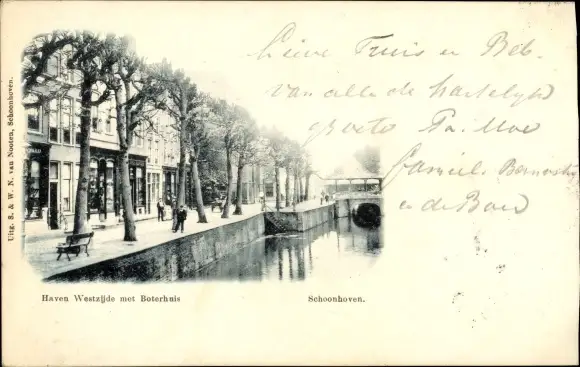 Lieve Truis en Beb.
van alle de hartelijk
groete Pa. Moe
familie
en de Boer
Uitg. S. & W. N. van Nooten, Schoonhoven.
Haven Westzijde met Boterhuis
Schoonhoven.